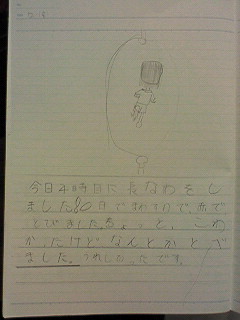 今日4時目に長なわをし
ました。80日で
とびました。ちょっと、こわ
かったけどなんとかとべ
ました。うれしかったです。